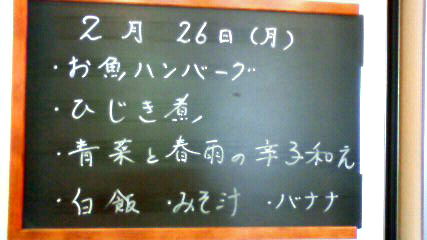 2月 26日(月)
・お魚ハンバーグ
・ひじき煮
・青菜と春雨の辛子和え
・白飯 ・みそ汁 ・バナナ